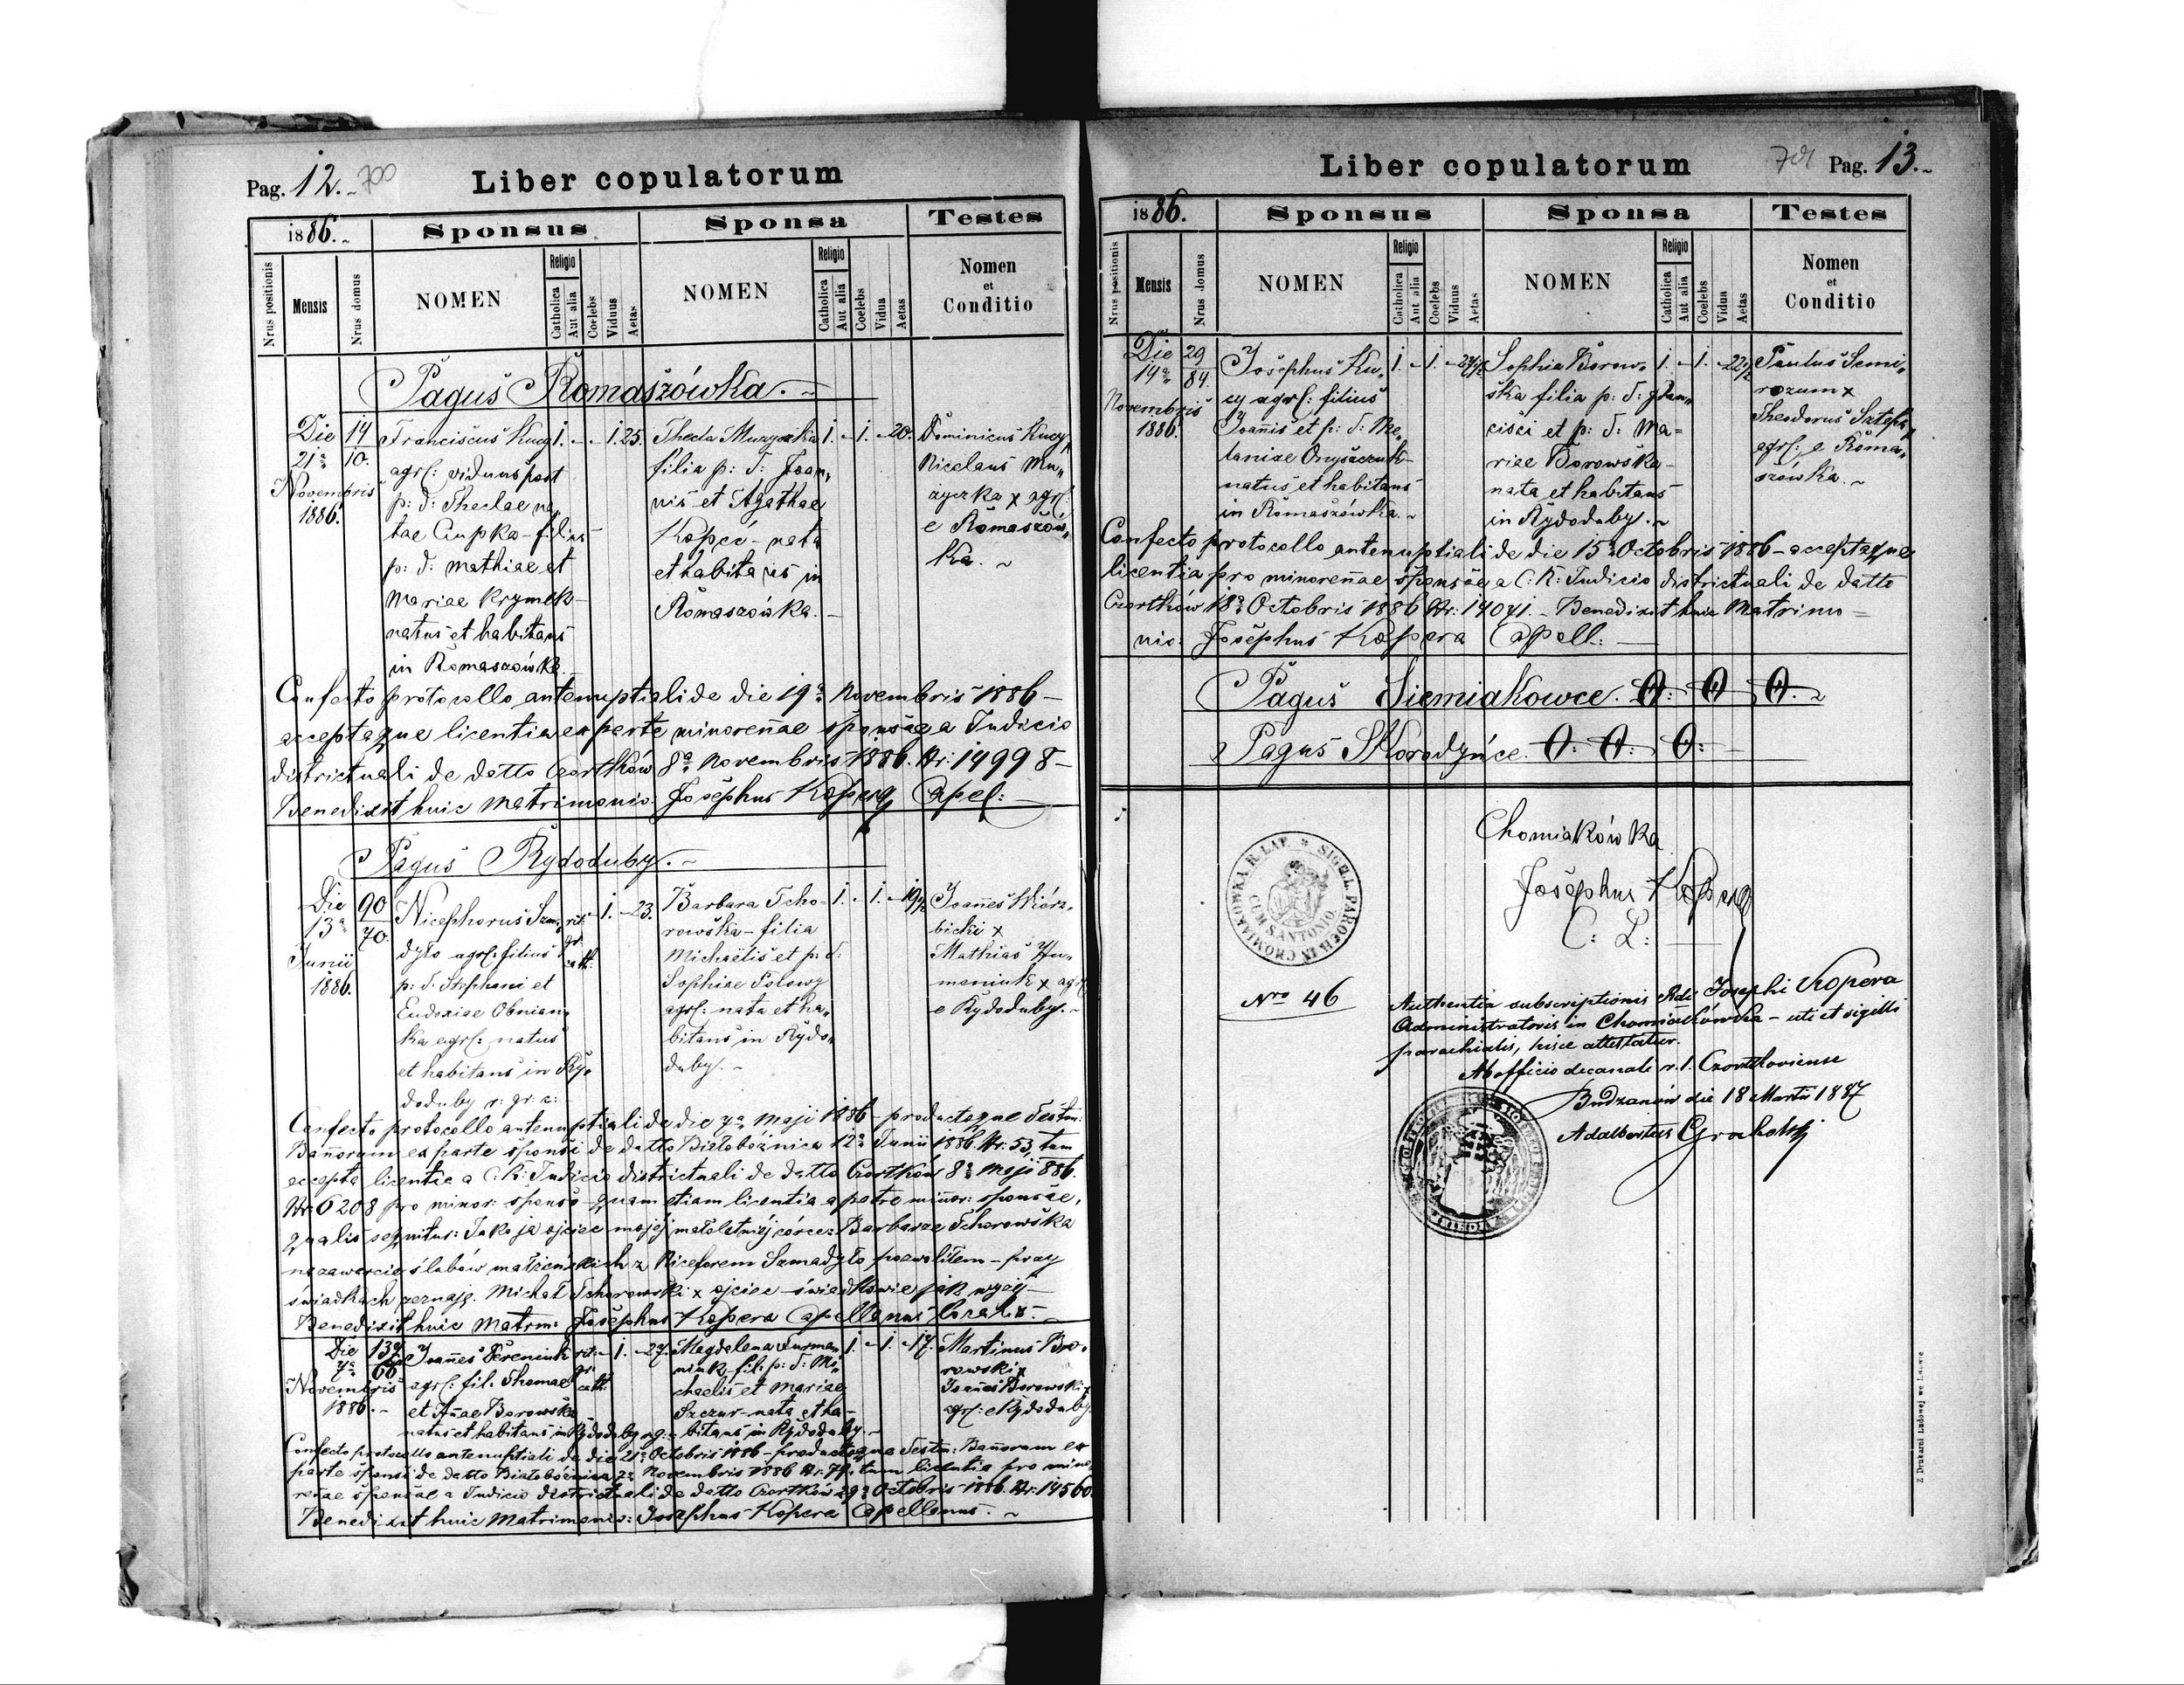 Pag. 12. 700
Liber copulatorum
1886.
Sponsus
Sponsa
Testes
Nrus positionis
Mensis
Nrus domus
NOMEN
Religio
Catholica
Aut alia
Coelebs
Viduus
Aetas
NOMEN
Religio
Catholica
Aut alia
Coelebs
Vidua
Aetas
Nomen
et
Conditio
Pagus Romaszówka.
Die
21a
Novembris
1886.
14
10.
Franciscus Kucy
agrl: viduus post
p: d: Theclae na
tae Cupka - filius
p: d: Mathiae et
Mariae Krymek
natus et habitans
in Romaszówka
1. 1. 25.
Thecla Muzyczka
filia p: d: Joan
nis et Agathae
Kopeć - nata
et habitans in
Romaszówka.
1. 1. 20.
Dominicus Kucy
Nicolaus Mu
zyczka x agrl:
e Romaszów
ka.
Confecto protocollo antenuptiali de die 19a Novembris 1886 -
acceptaque licentia ex parte minorenae sponsae a Judicio
districtuali de datto Czortków 8a Novembris 1886. Nr: 14998 -
Benedixit huic Matrimonio. Josephus Kopera Capel:
Pagus Rydoduby.
Die
13a
Junii
1886.
90
70.
Nicephorus Szma
dyło agrl: filius
p: d: Stephani et
Eudoxiae Obnian
ka agrl: natus
et habitans in Ry
doduby r: gr: c:
rit:
gr:
cath:
1. 23.
Barbara Tcho
rowska - filia
Michaëlis et p: d:
Sophiae
agrl: nata et ha
bitans in Rydo
duby.
1. 1. 19 1/2
Joannes Wierz
bicki x
Mathias Hu
meniuk x agrl
e Rydoduby.
Confecto protocollo antenuptiali de die 7a Maji 1886 - productoque Testm:
Banorum ex parte sponsi de datto Białobożnica 12a Junii 1886. Nr. 53, tum
accepta licentia a C: K: Judicio districtuali de datto Czortków 8a Maji 886.
Nr: 6208 pro minor: sponso - quam etiam licentia a patre minor: sponsae,
qualis sequitur: Jako ja ojciec mojéj małoletniéj córce Barbarze Tchorowska
na zawarcie ślubów małżeńskich z Niceforem Szmadyło pozwoliłem - przy
świadkach zeznaję. Michał Tchorowski x ojciec - świadkowie jak wyżéj -
Benedixit huic Matrm: Josephus Kopera Capellanus localis.
Die
7a
Novembris
1886.
137
68
Joannes Dereniuk
agrl: fil. Thomae
et Anae Borowska
natus et habitans in Rydoduby
rit:
gr:
cath:
1. 27.
Magdalena Furma
niuk - fil. p: d: Mi
chaelis et Mariae
Szczur - nata et ha
bitans in Rydoduby.
1. 1. 17.
Martinus Bo
rowski x
Joanes Borowski x
agrl: e Rydoduby
Confecto protocollo antenuptiali de die 21a Octobris 1886 - productoque Testm: Banorum ex
parte sponsi de datto Białobożnica 2a Novembris 1886 Nr. 79, tum licentia pro mino
renae sponsae a Judicio districtuali de datto Czortków 29a Octobris 1886. Nr: 14560.
Benedixit huic Matrimonio: Josephus Kopera Capellanus.
Liber copulatorum
701 Pag. 13.
1886.
Sponsus
Sponsa
Testes
Nrus positionis
Mensis
Nrus domus
NOMEN
Religio
Catholica
Aut alia
Coelebs
Viduus
Aetas
NOMEN
Religio
Catholica
Aut alia
Coelebs
Vidua
Aetas
Nomen
et
Conditio
Die
14a
Novembris
1886.
29
84.
Josephus Ku
cy agrl: filius
Joanis et p: d: Me
laniae Onyszczuk
natus et habitans
in Romaszówka.
1. 1. 24 1/2
Sophia Borow
ska filia p: d: Fran
cisci et p: d: Ma=
riae Borowska
nata et habitans
in Rydoduby.
1. 1. 22 1/2
Paulus Semi
rozum x
Theodorus Sztepa
agrl: e Roma
szówka.
Confecto protocollo antenuptiali de die 15a Octobris 1886 - acceptaque
licentia pro minorenae sponsae a C: K: Judicio districtuali de datto
Czortków 18a Octobris 1886 Nr: 14041. - Benedixit huic Matrimo=
nio: Josephus Kopera Capell:
Pagus Siemiakowce. 0: 0 0.
Pagus Skorodyńce. 0: 0: 0:
Chomiakówka
Josephus Kopera
C: L:
SIGILL. PAROCH. IN CHOMIAKOWKA R. LAT.
CUM S. ANTONIO.
Nro 46
Authentia subscriptionis Rdi Josephi Kopera
Administratoris in Chomiakówka - uti et sigilli
parochialis, hisce attestatur.
Ab officio decanali r. l. Czortkoviense
Budzanów die 18 Martii 1887
Adalbertus Grohotz
Z Drukarni Ludowej we Lwowie